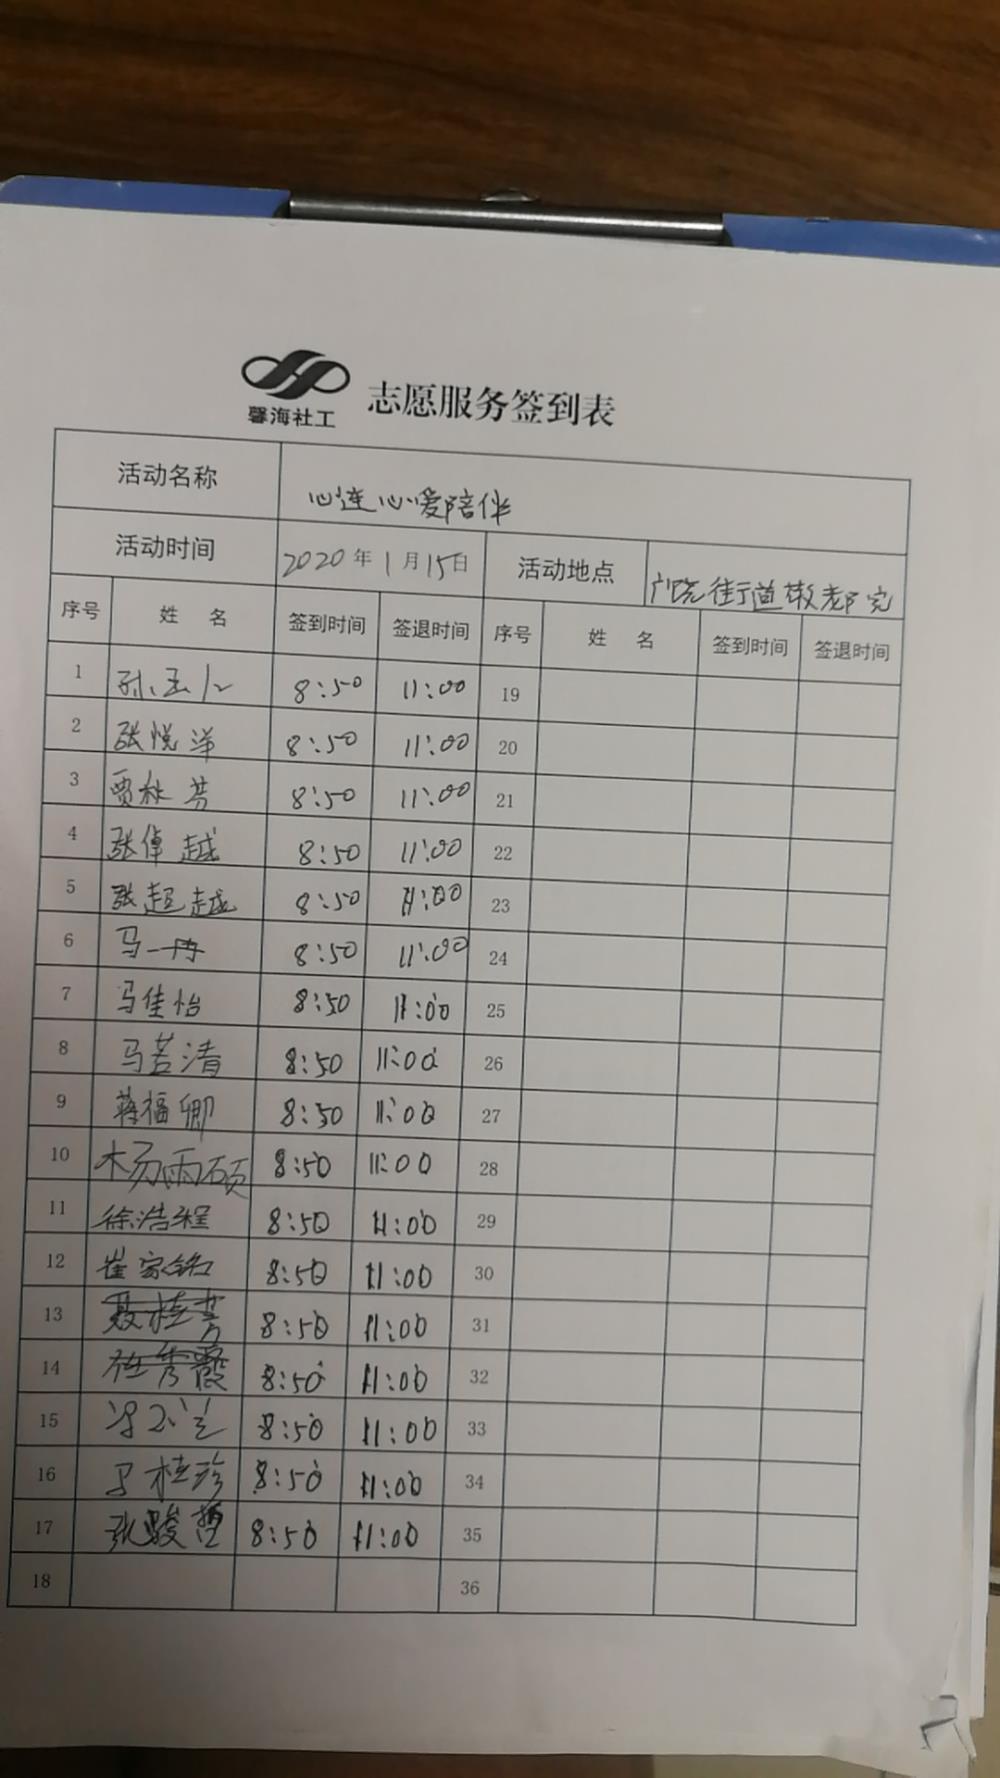 馨海社工
志愿服务签到表
活动名称 心连心爱陪伴
活动时间 2020年1月15日 活动地点 广饶街道敬老院
序号 姓 名 签到时间 签退时间 序号 姓 名 签到时间 签退时间
1 孙玉仁 8:50 11:00 19
2 张悦洋 8:50 11:00 20
3 贾秋芳 8:50 11:00 21
4 张倬越 8:50 11:00 22
5 张超越 8:50 11:00 23
6 马一冉 8:50 11:00 24
7 马佳怡 8:50 11:00 25
8 马若清 8:50 11:00 26
9 蒋福卿 8:50 11:00 27
10 杨雨硕 8:50 11:00 28
11 徐浩程 8:50 11:00 29
12 崔家铭 8:50 11:00 30
13 聂桂芳 8:50 11:00 31
14 任秀霞 8:50 11:00 32
15 8:50 11:00 33
16 马桂珍 8:50 11:00 34
17 张骏哲 8:50 11:00 35
18 36